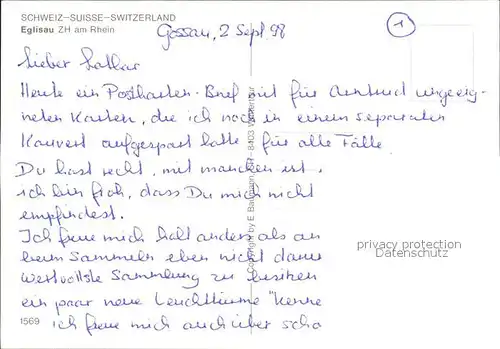 SCHWEIZ–SUISSE–SWITZERLAND
Eglisau ZH am Rhein
Gossau, 2 Sept 98
1
Lieber Lothar
Heute ein Postkarten-Brief mit für Antwort ungeeig-
neten Karten, die ich noch in einem separaten
Kouvert aufgespart hatte für alle Fälle.
Du hast recht, mit manchen ist
ich bin froh, dass Du mich nicht
empfindest.
Ich freue mich halt anders als an
beim Sammeln eben nicht darum
wertvollste Sammlung zu besitzen
ein paar neue Leuchttürme "kenne
ich freue mich auch über scho
Copyright by E. Baumann 8403
privacy protection
Datenschutz
1569